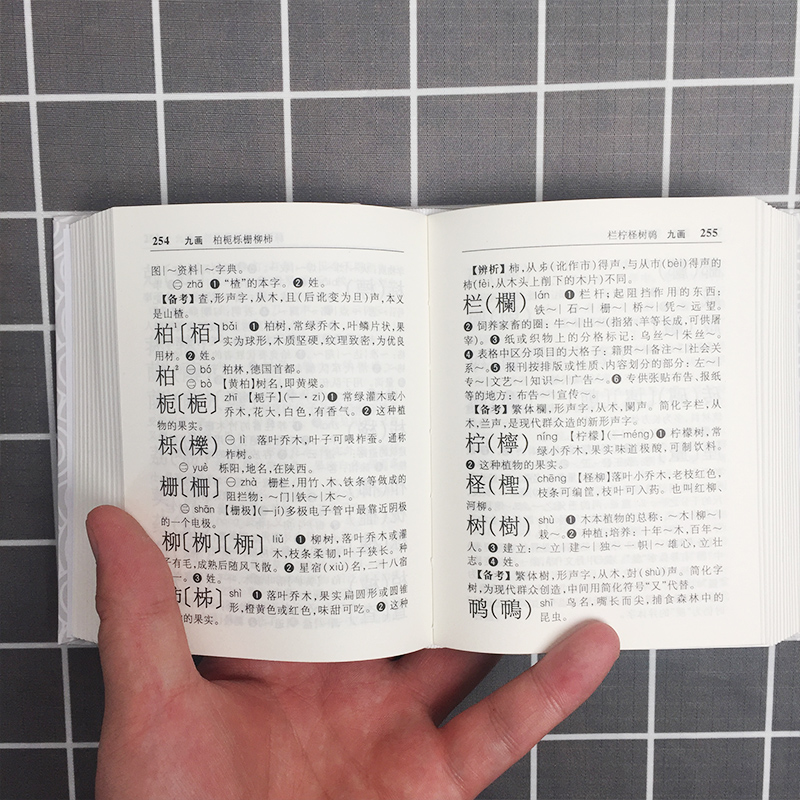 254 九画 柏栀栎栅柳柿
图|～资料|～字典。
㊀ zhā ❶ “楂”的本字。❷ 姓。
【备考】查，形声字，从木，且(后讹变为旦)声，本义
是山楂。
柏¹〔栢〕 bǎi ❶ 柏树，常绿乔木，叶鳞片状，果
实为球形，木质坚硬，纹理致密，为优良
用材。❷ 姓。
柏² ㊀ bó 柏林，德国首都。
㊁ bò 【黄柏】树名，即黄檗。
栀〔梔〕 zhī 【栀子】(—·zi) ❶ 常绿灌木或小
乔木，花大，白色，有香气。❷ 这种植
物的果实。
栎(櫟) ㊀ lì 落叶乔木，叶子可喂柞蚕。通称
柞树。
㊁ yuè 栎阳，地名，在陕西。
栅〔柵〕 ㊀ zhà 栅栏，用竹、木、铁条等做成的
阻拦物：～门|铁～|木～。
㊁ shān 【栅极】(—jí)多极电子管中最靠近阴极
的一个电极。
柳〔栁〕〔桞〕 liǔ ❶ 柳树，落叶乔木或灌
木，枝条柔韧，叶子狭长。种
子有毛，成熟后随风飞散。❷ 星宿(xiù)名，二十八宿
一。❸ 姓。
柿〔柹〕 shì ❶ 落叶乔木，果实扁圆形或圆锥
形，橙黄色或红色，味甜可吃。❷ 这种
的果实。
栏柠柽树鸸 九画 255
【辨析】柿，从𠂔(讹作市)得声，与从巿(bèi)得声的
杮(fèi，从木头上削下的木片)不同。
栏(欄) lán ❶ 栏杆；起阻挡作用的东西：
铁～|石～|栅～|桥～|凭～远望。
❷ 饲养家畜的圈：牛～|出～(指猪、羊等长成，可供屠
宰)。❸ 纸或织物上的分格标记：乌丝～|朱丝～。
❹ 表格中区分项目的大格子：籍贯～|备注～|社会关
系～。❺ 报刊按排版或性质、内容划分的部分：左～|
专～|文艺～|知识～|广告～。❻ 专供张贴布告、报纸
等的地方：布告～|宣传～。
【备考】繁体欄，形声字，从木，闌声。简化字栏，从
木，兰声，是现代群众造的新形声字。
柠(檸) níng 【柠檬】(—méng) ❶ 柠檬树，常
绿小乔木，果实味道极酸，可制饮料。
❷ 这种植物的果实。
柽(檉) chēng 【柽柳】落叶小乔木，老枝红色，
枝条可编筐，枝叶可入药。也叫红柳、
河柳。
树(樹) shù ❶ 木本植物的总称：～木|柳～|
栽～。❷ 种植；培养：十年～木，百年～
人。❸ 建立：～立|建～|独～一帜|～雄心，立壮
志。❹ 姓。
【备考】繁体樹，形声字，从木，尌(shù)声。简化字
树，为现代群众创造，中间用简化符号“又”代替。
shī 鸟名，嘴长而尖，捕食森林中的
昆虫。